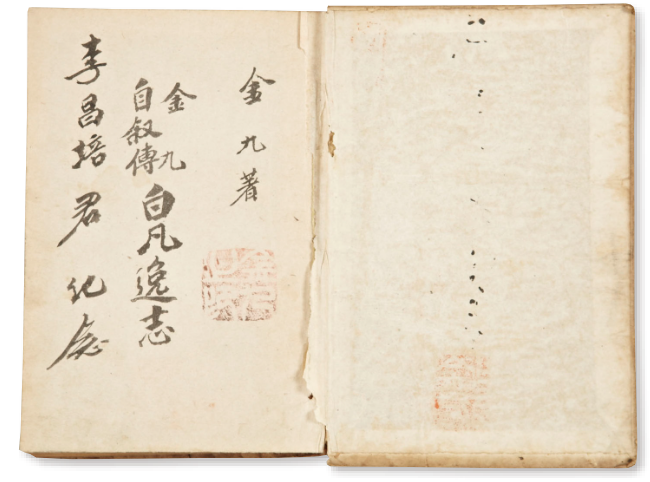 金九著
金九
自叙傳
白凡逸志
李昌培君 紀念